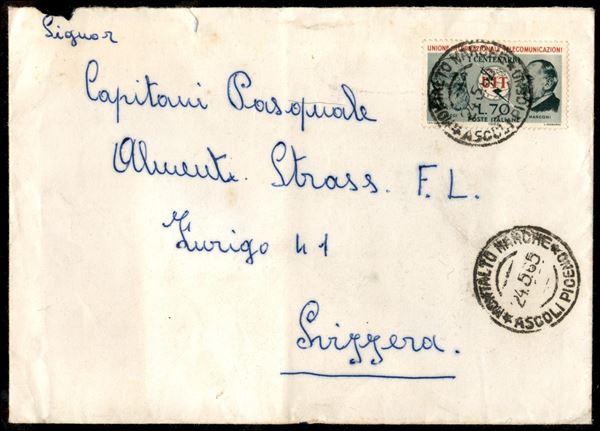 Signor
Capitani Pasquale
Almente. Strass. F. L.
Zurigo 41
Svizzera.
UNIONE INTERNAZIONALE TELECOMUNICAZIONI
I CENTENARIO
UIT
L.70
POSTE ITALIANE
MARCONI
MONTALTO MARCHE
ASCOLI PICENO
24.5.65
MONTALTO MARCHE
ASCOLI PICENO
24.5.65